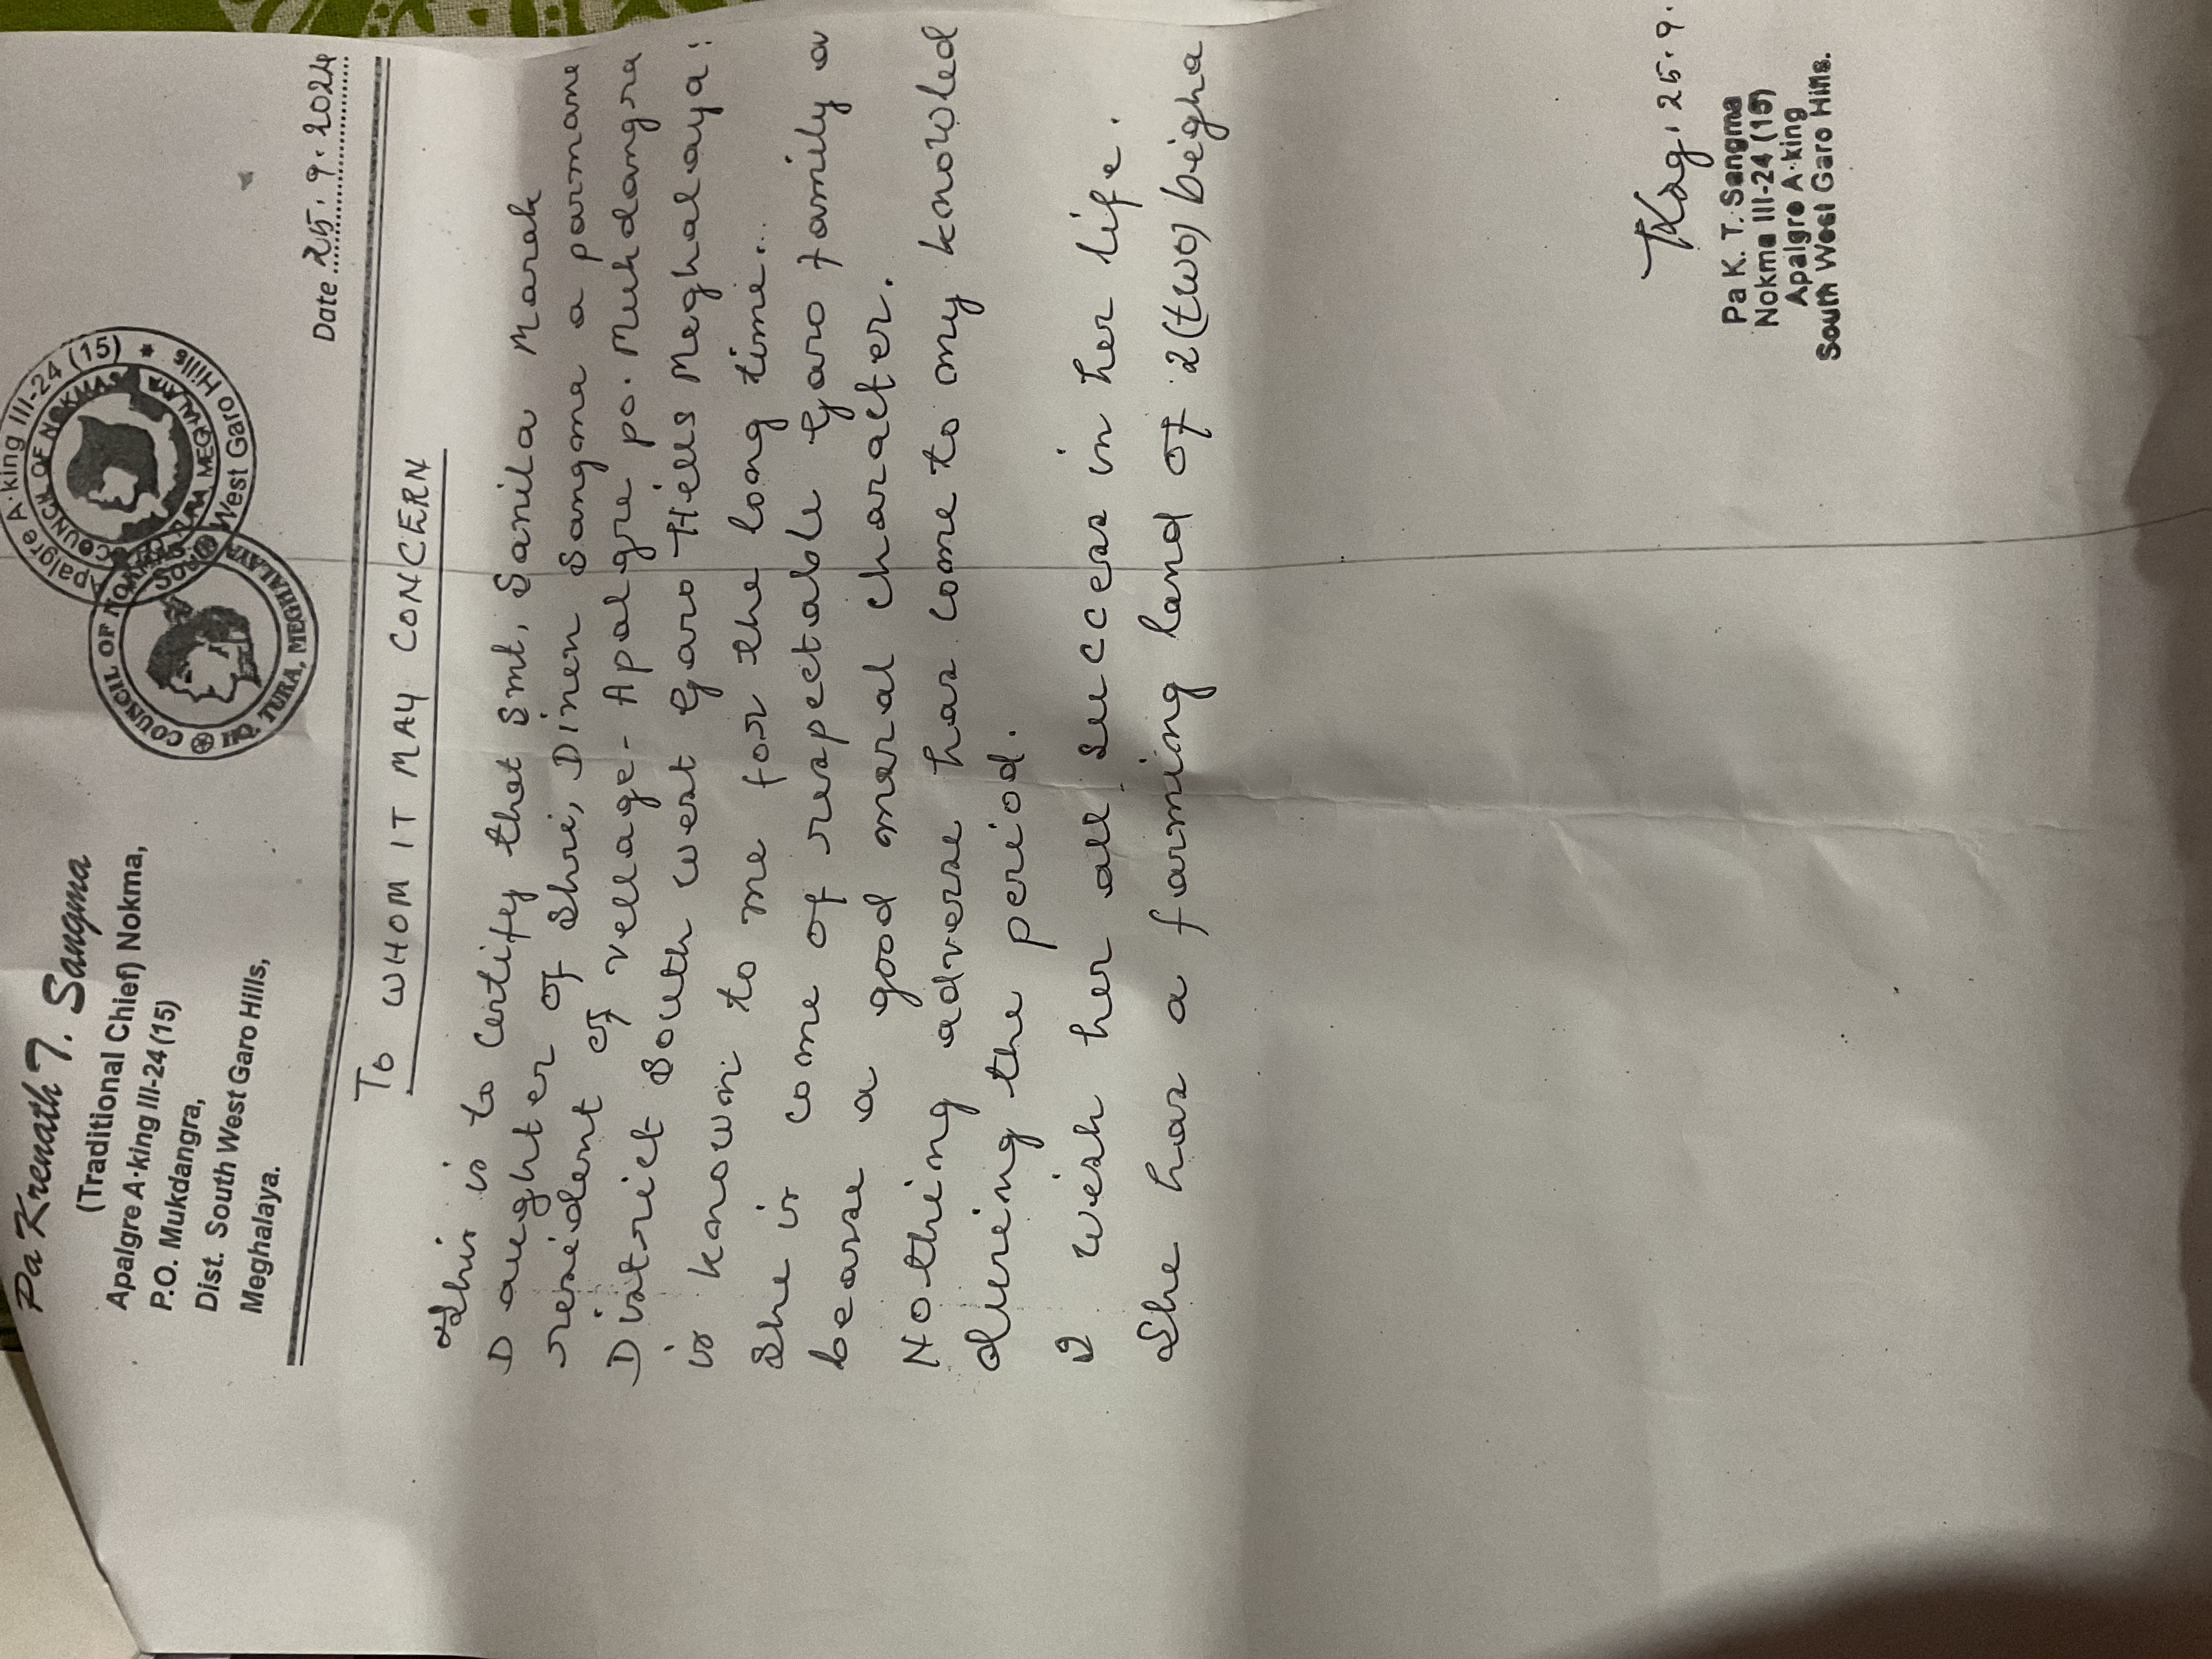 Pa Krenath T. Sangma
(Traditional Chief) Nokma,
Apalgre A·king III-24 (15)
P.O. Mukdangra,
Dist. South West Garo Hills,
Meghalaya.
COUNCIL OF NOKMAS
HQ. TURA, MEGHALAYA
Apalgre A·king III-24 (15) * South West Garo Hills
COUNCIL OF NOKMAS
HQ. TURA, MEGHALAYA
Date 25.9.2024
To
WHOM IT MAY CONCERN
This is to certify that Smt, Sanila Marak
Daughter of Shri, Dinen Sangma a parmane
resident of vellage- Apalgre po. Mukdangra
District South west Garo Hills Meghalaya:
is known to me for the long time...
She is come of respectable Garo family a
bearse a good meral character.
Nothing adverse has come to my knowled
during the period.
I wish her all success in her life.
She has a farming land of 2(two) bigha
25.9.
Pa K. T. Sangma
Nokma III-24 (15)
Apalgre A·king
South West Garo Hills.